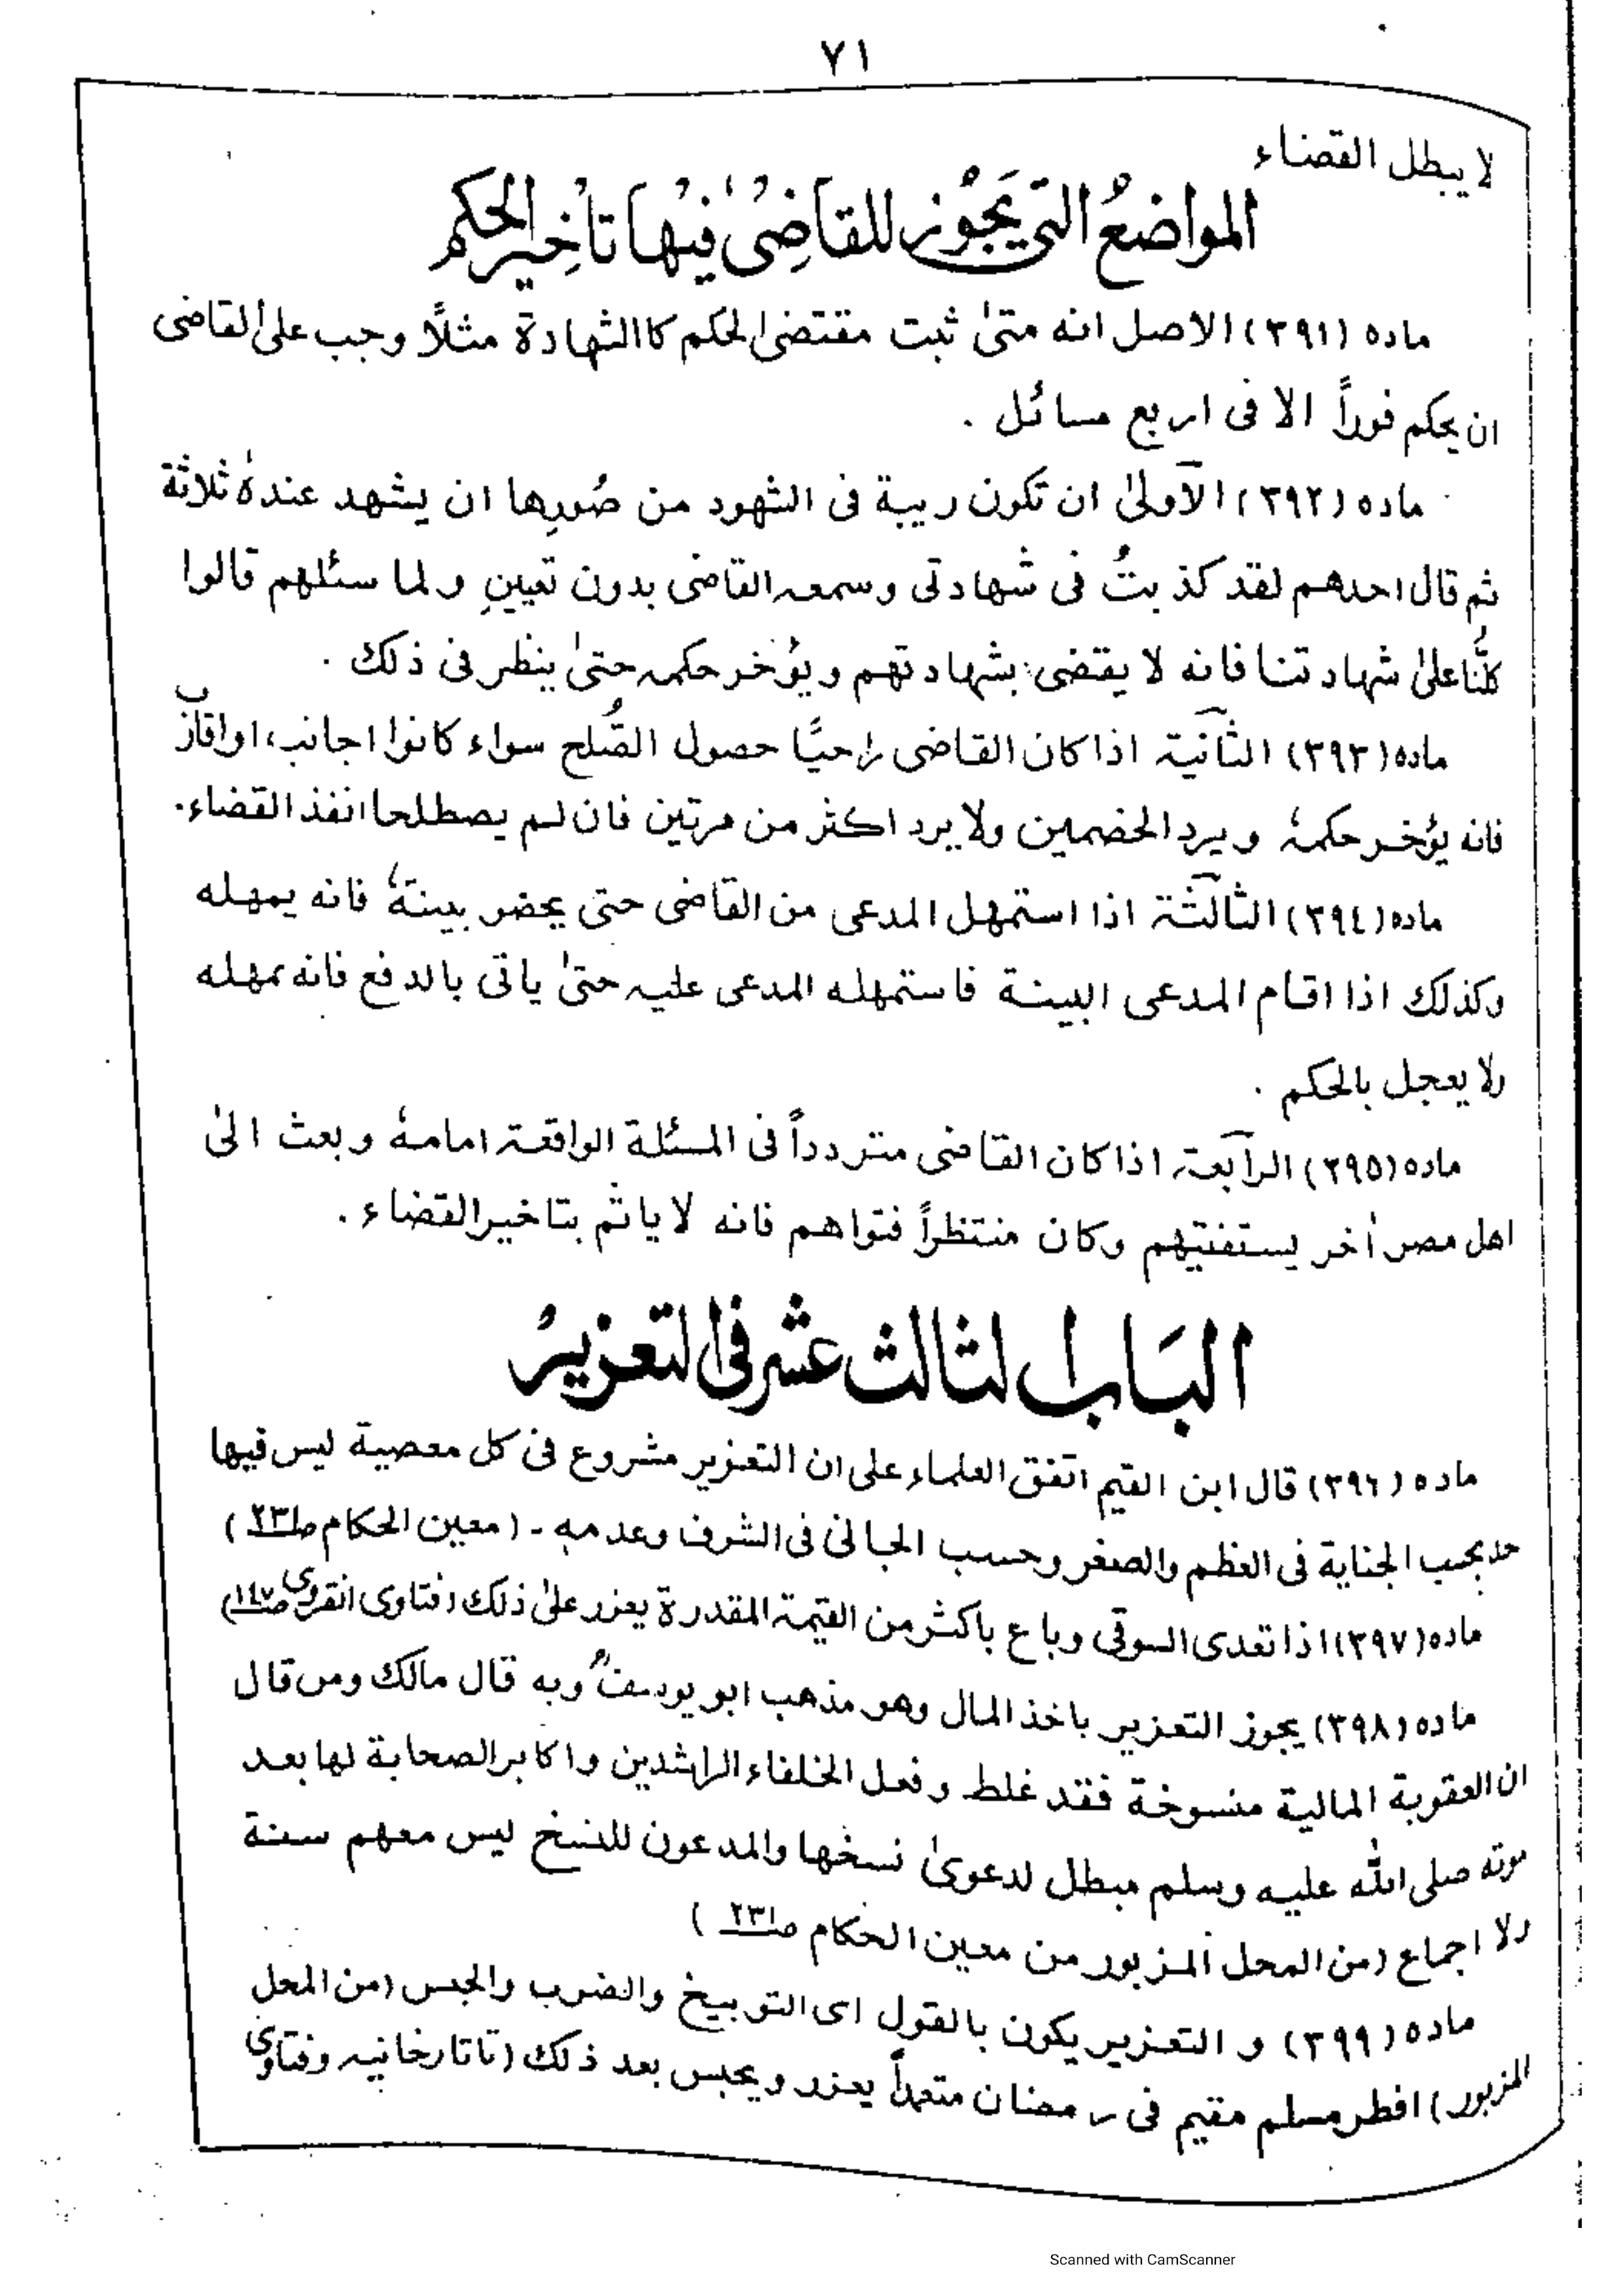 ٧١
لا يبطل القضاء
المواضعُ التي يَجُوز للقاضِىْ فيْها تأخِير الحكم
ماده (٣٩١) الاصل انه متىٰ ثبت مقتضى الحكم كاالشهادة مثلًا وجب على القاضى
ان يحكم فوراً الا فى اربع مسائل .
ماده (٣٩٢) الآولىٰ ان تكون ريبة فى الشهود من صُورِها ان يشهد عندهٗ ثلاثة
ثم قال احدهم لقد كذبتُ فى شهادتى وسمعه القاضى بدون تعيينٍ ولما سئلهم قالوا
كلُّنا علىٰ شهادتنا فانه لا يقتضى بشهادتهم ويؤخر حكمه حتىٰ ينظر فى ذلك .
ماده (٣٩٣) الثانية اذا كان القاضى راحيًا حصول الصُّلح سواء كانوا اجانب، او اقارب
فانه يؤخر حكمهٗ ويرد الخضمين ولا يرد اكثر من مرتين فان لم يصطلحا انفذ القضاء.
ماده (٣٩٤) الثالثة اذا استمهل المدعى من القاضى حتى يحضر بينتهٗ فانه يمهله
وكذلك اذا اقام المدعى البينة فاستمهله المدعى عليه حتىٰ ياتى بالدفع فانه يمهله
ولا يعجل بالحكم .
ماده (٣٩٥) الرابعة اذا كان القاضى متردداً فى المسئلة الواقعة امامهٗ وبعث الىٰ
اهل مصر اٰخر يستفتيهم وكان منتظراً فتواهم فانه لا ياثم بتاخير القضاء .
البَاب الثالث عشر فى التعزيرْ
ماده (٣٩٦) قال ابن القيم اتفق العلماء على ان التعزير مشروع فى كل معصية ليس فيها
حد بحسب الجناية فى العظم والصغر وحسب الجانى فى الشرف وعدمه - (معين الحكام صـ٢٣١)
ماده (٣٩٧) اذا تعدى السوقى وباع باكثر من القيمة المقدرة يعزر علىٰ ذلك (فتاوى انقروى صـ١٤٧)
ماده (٣٩٨) يجوز التعزير باخذ المال وهو مذهب ابو يوسفؒ وبه قال مالك ومن قال
ان العقوبة المالية منسوخة فقد غلط وفعل الخلفاء الراشدين واكابر الصحابة لها بعد
موته صلى الله عليه وسلم مبطل لدعوىٰ نسخها والمدعون للنسخ ليس معهم سنة
ولا اجماع (من المحل المزبور من معين الحكام صـ٢٣١)
ماده (٣٩٩) و التعزير يكون بالقول اى التوبيخ والضرب والحبس (من المحل
المزبور) افطر مسلم مقيم فى رمضان متعمداً يعزر ويحبس بعد ذلك (تاتارخانيه وفتاوى
Scanned with CamScanner